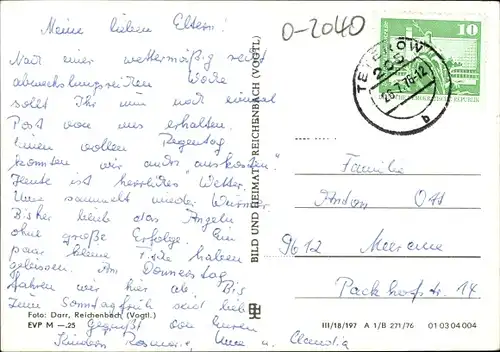 Meine lieben Eltern!
Nach einer wettermäßig recht
abwechslungsreichen Woche
sollt Ihr nun noch einmal
Post von uns erhalten.
Einen vollen Regentag
konnten wir auch "auskosten".
Heute ist herrliches Wetter.
Uwe sammelt wieder Würmer.
Bisher blieb das Angeln
ohne große Erfolge. Ein
paar kleine Fische haben
gebissen. Am Donnerstag
fahren wir hier ab. Bis
zum Sonntag früh seid lieb
gegrüßt von Euren
Kindern Rosmarie, Uwe u. Claudia
Foto: Darr, Reichenbach (Vogtl.)
EVP M —.25
BILD UND HEIMAT REICHENBACH (VOGTL)
0-2040
TETEROW
205
26.7.76-12
b
10
DEUTSCHE DEMOKRATISCHE REPUBLIK
Familie
Anton Ott
9612 Meerane
Packhofstr. 14
III/18/197 A 1/B 271/76 01 03 04 004